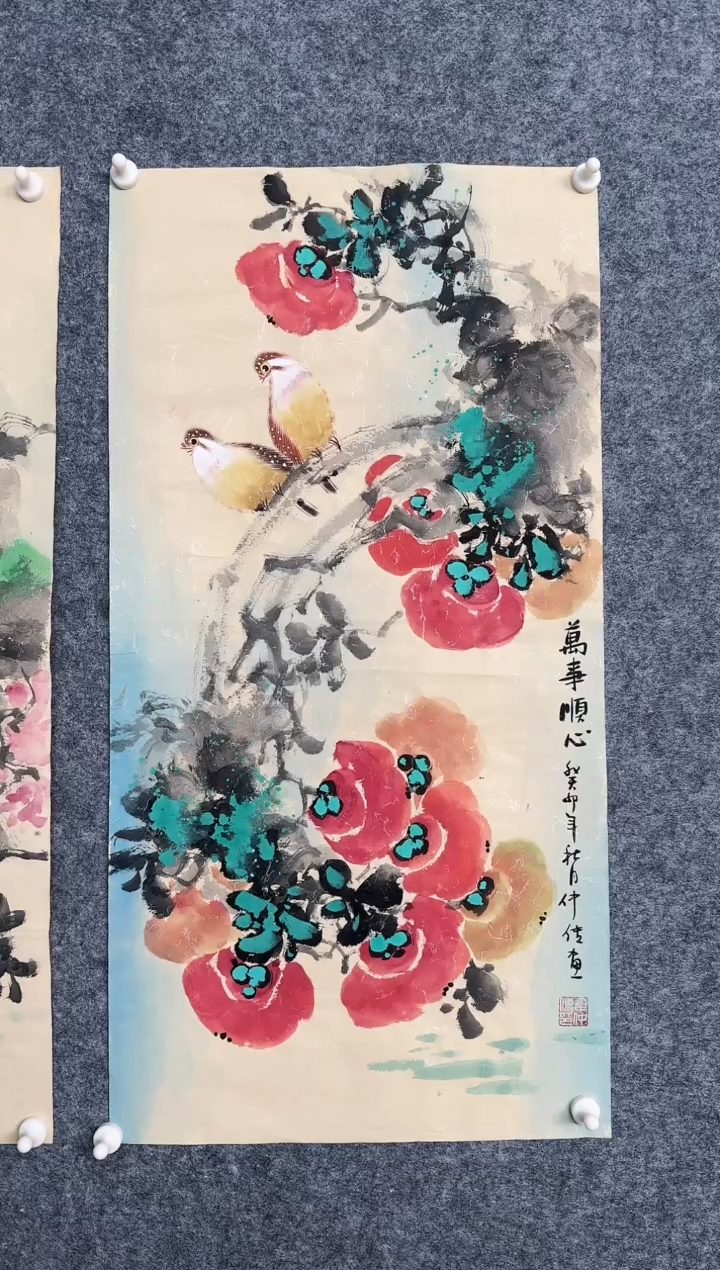 萬事順心
癸卯年秋月仲佳畫